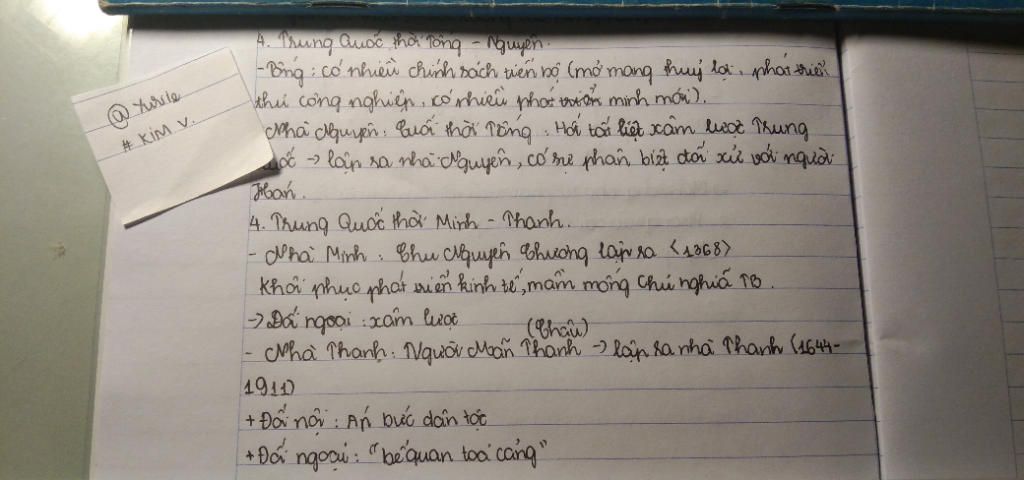 4. Trung Quốc thời Tống - Nguyên.
- Tống : có nhiều chính sách tiến bộ (mở mang thuỷ lợi, phát triển
thủ công nghiệp, có nhiều phát minh mới).
Nhà Nguyên : Cuối thời Tống. xâm lược Trung
Quốc → lập ra nhà Nguyên, có sự phân biệt đối xử với người
Hán.
4. Trung Quốc thời Minh - Thanh.
- Nhà Minh : Chu Nguyên Chương lập ra <1368>
Khôi phục phát triển kinh tế, mầm mống Chủ nghĩa TB.
→ Đối ngoại : xâm lược
(Châu)
- Nhà Thanh : Người Mãn Thanh → lập ra nhà Thanh (1644-
1911)
+ Đối nội : Áp bức dân tộc
+ Đối ngoại : "bế quan toả cảng"
# KIM V.